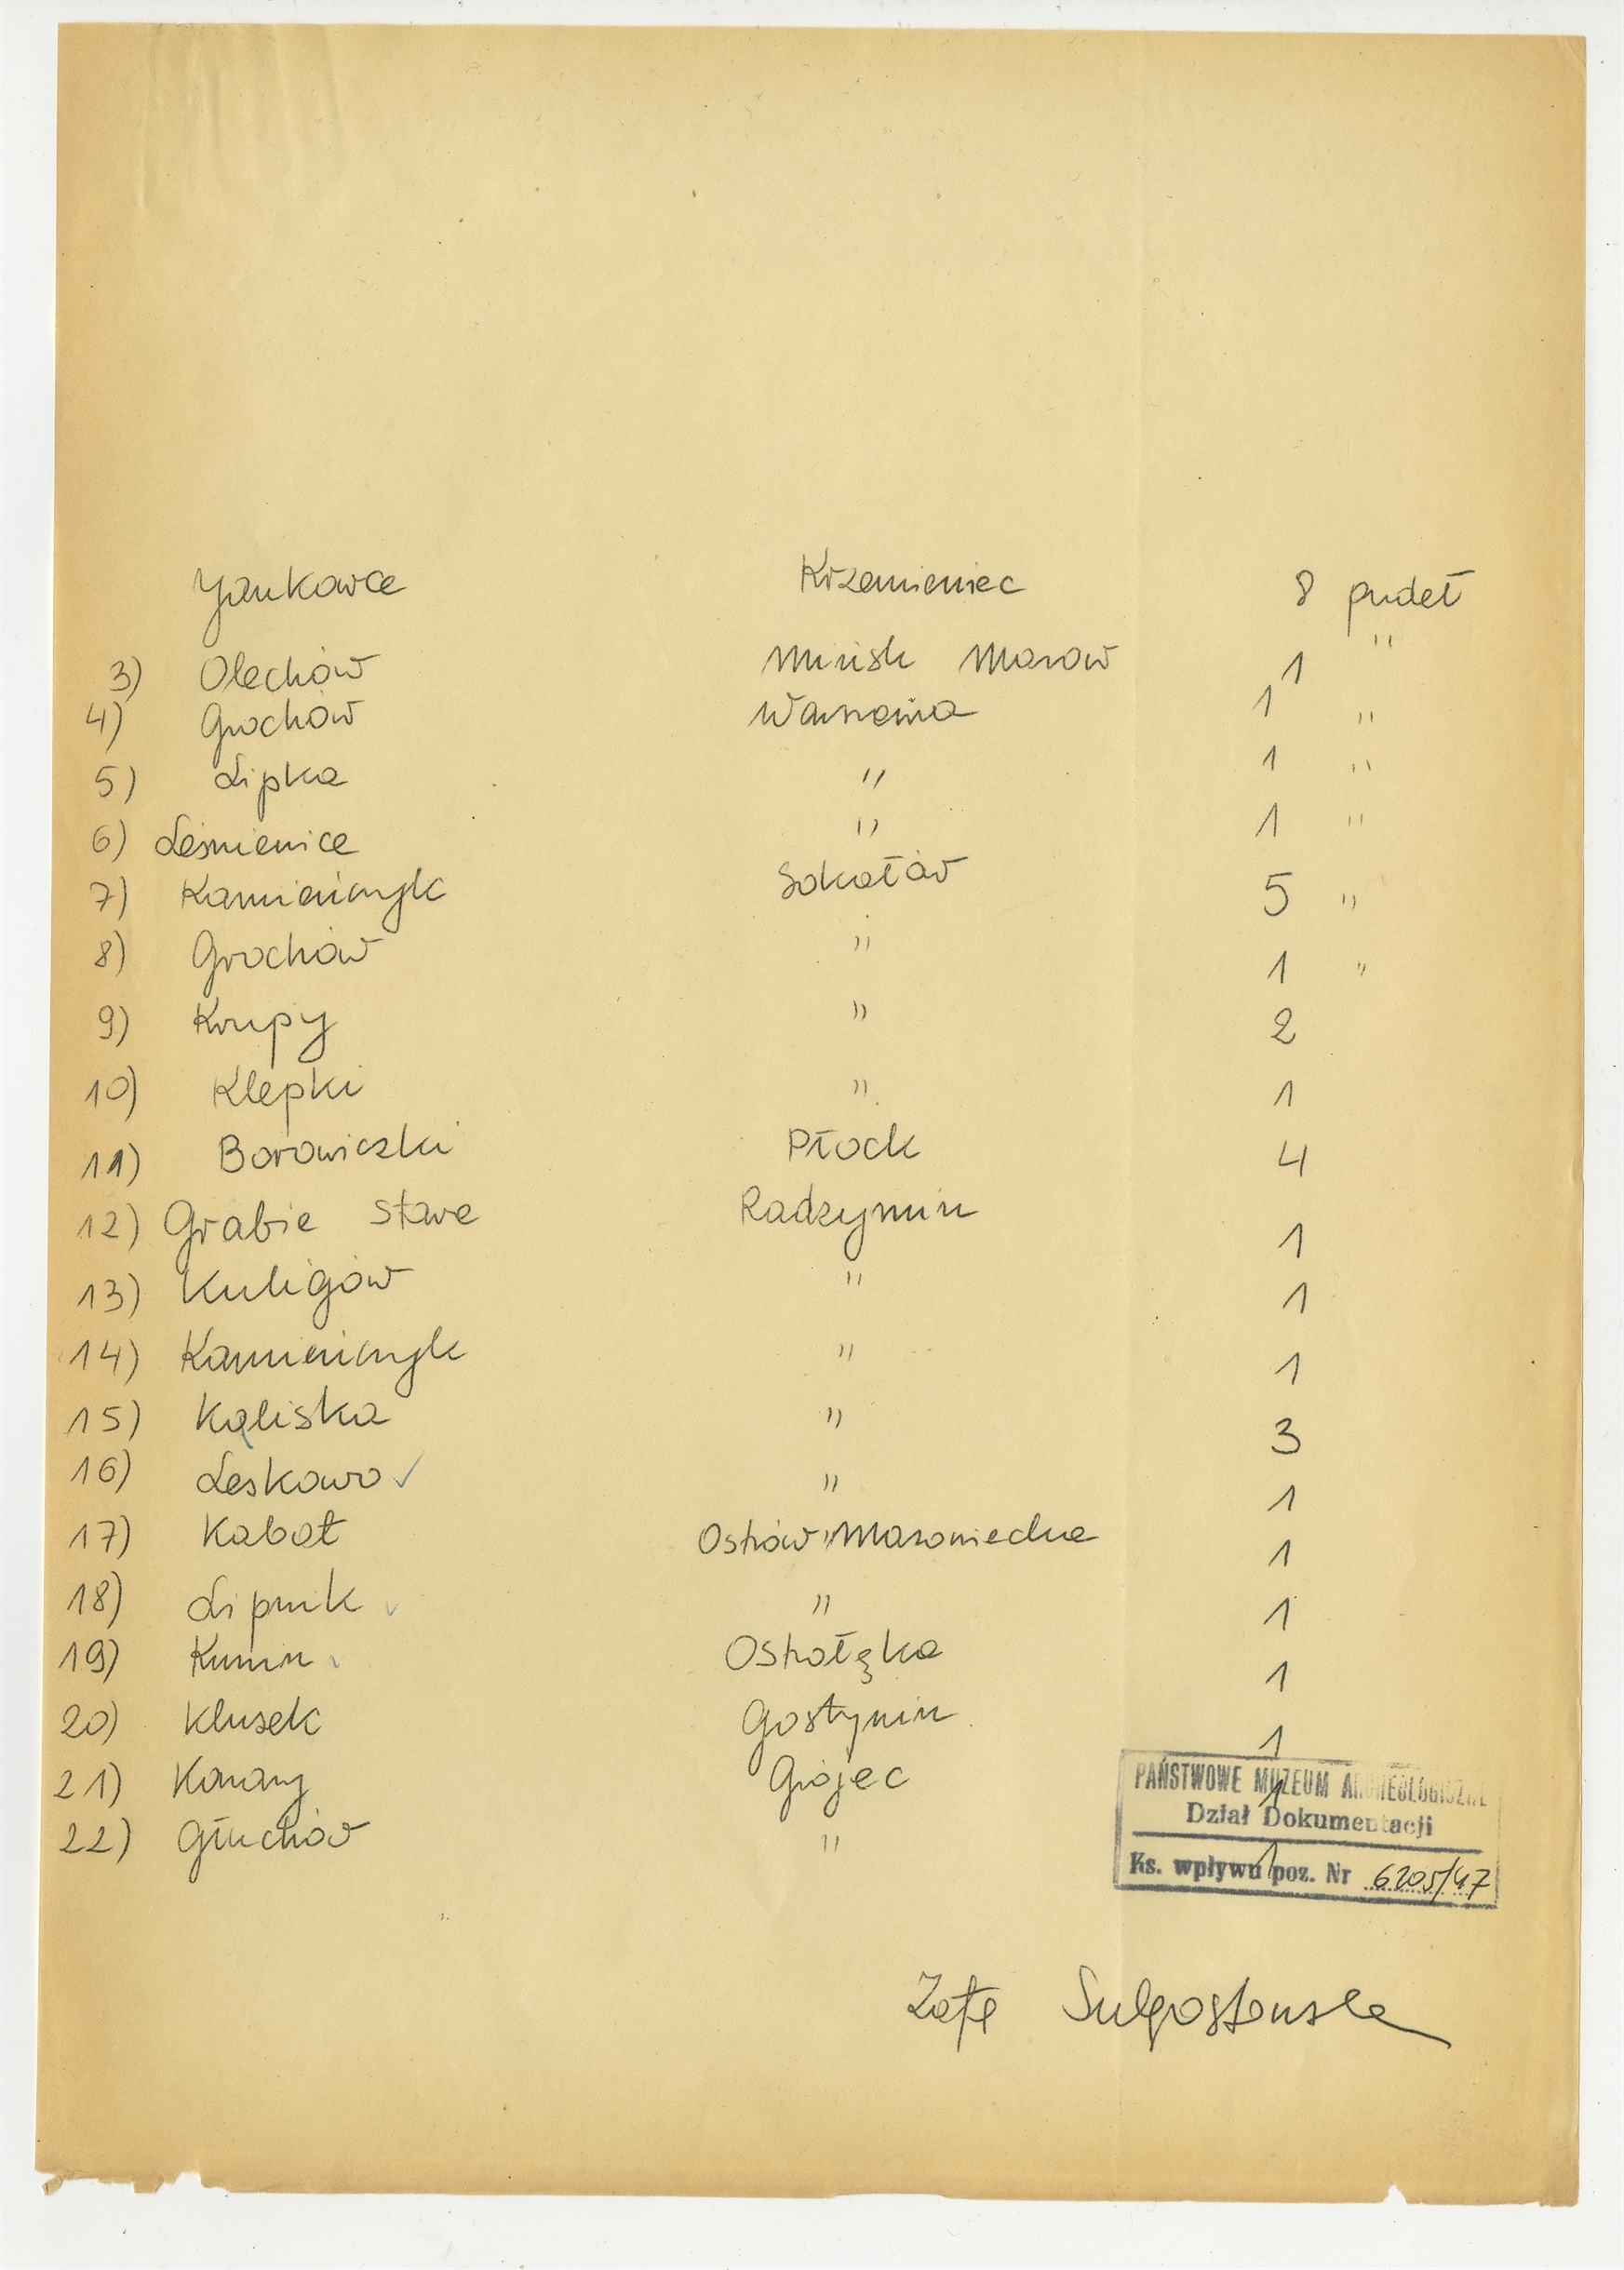 Jankowce Krzemieniec 8 pudeł
3) Olechów Mińsk Mazow 1 "
4) Grochów Warszawa 1 "
5) Lipka " 1 "
6) Leśnienice " 1 "
7) Kamieńczyk Sokołów 5 "
8) Grochów " 1 "
9) Krupy " 2
10) Klepki " 1
11) Borowiczki Płock 4
12) Grabie Stare Radzymin 1
13) Kuligów " 1
14) Kamieńczyk " 1
15) Kąliska " 3
16) Leskowo ✓ " 1
17) Kabat Ostrów Mazowiecka 1
18) Lipnik ✓ " 1
19) Kunin Ostrołęka 1
20) Klusek Gostynin 1
21) Konary Grójec 1
22) Głuchów " 1
PAŃSTWOWE MUZEUM ARCHEOLOGICZNE
Dział Dokumentacji
Ks. wpływu poz. Nr 6205/47
Zofe Sulgostowska